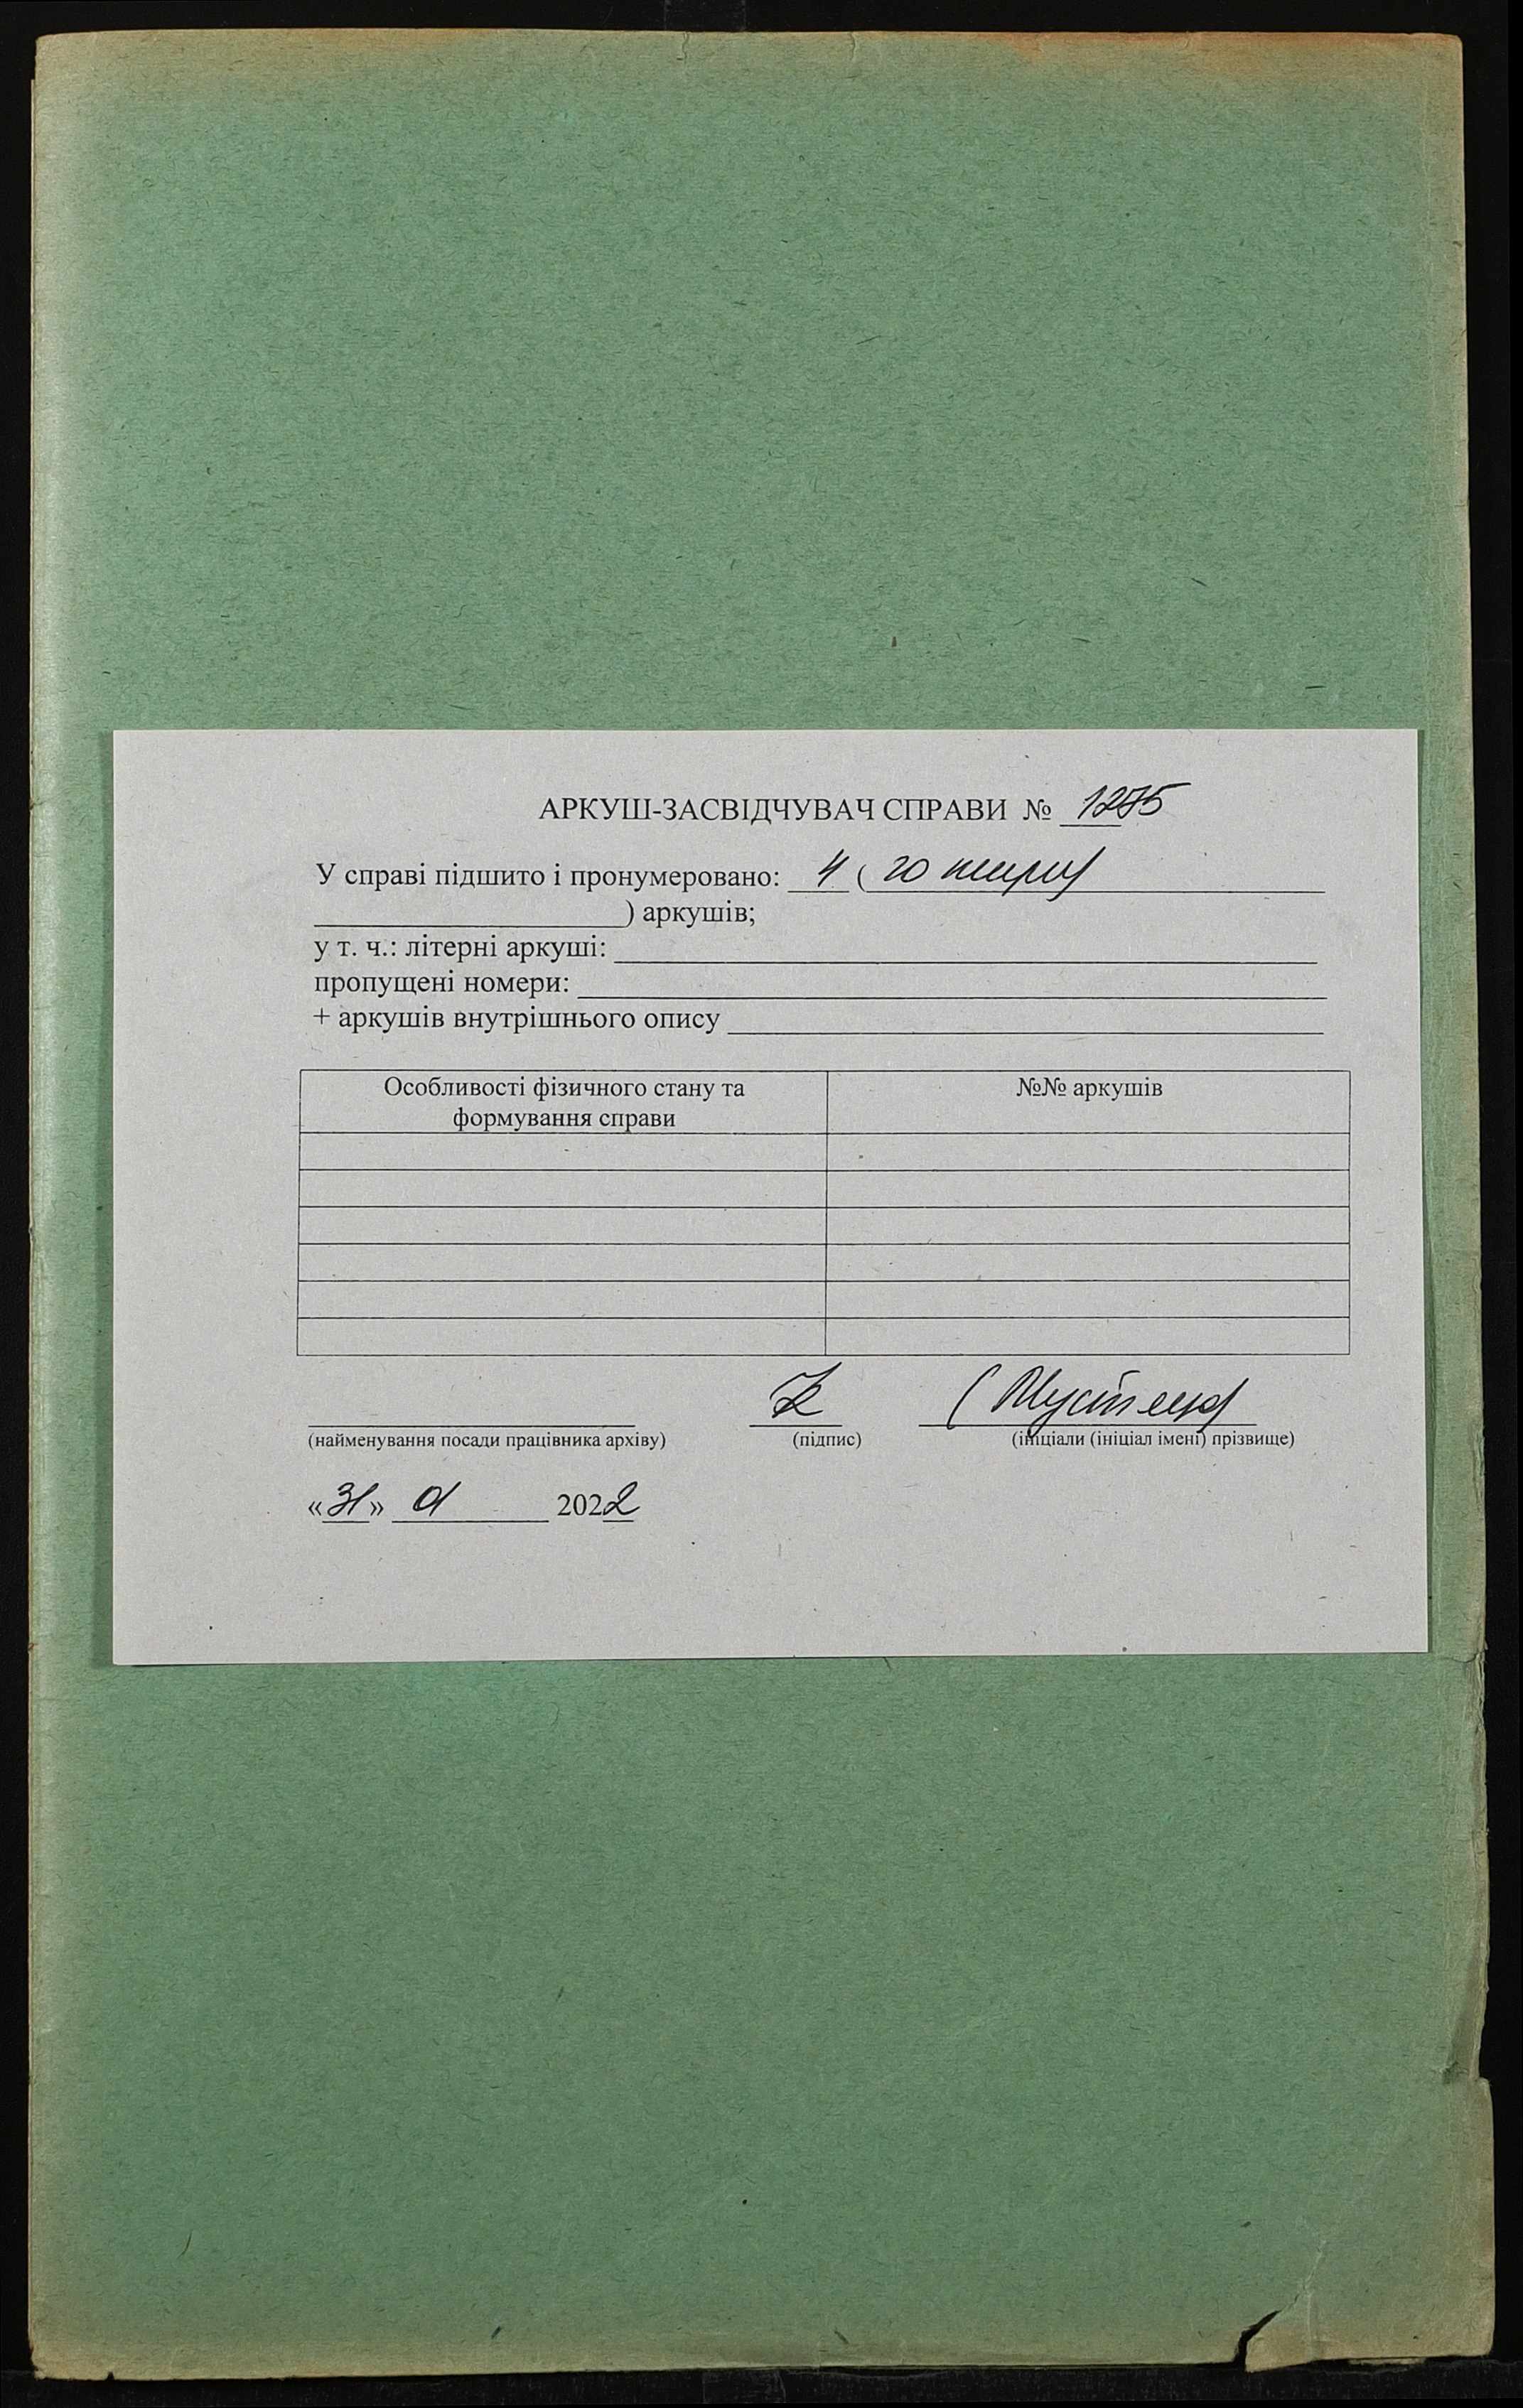 АРКУШ-ЗАСВІДЧУВАЧ СПРАВИ № 1275
У справі підшито і пронумеровано: 4 (
) аркушів;
у т. ч.: літерні аркуші:
пропущені номери:
+ аркушів внутрішнього опису
Особливості фізичного стану та
формування справи
№№ аркушів
(найменування посади працівника архіву)
(підпис)
(ініціали (ініціал імені) прізвище)
«31» 01 2022